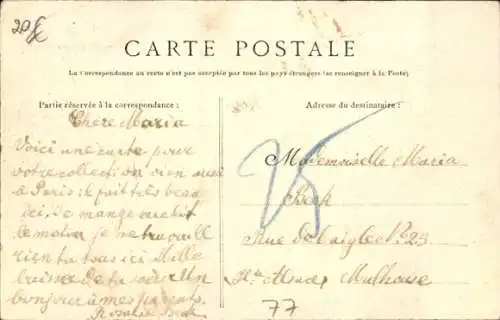 20
CARTE POSTALE
La correspondance au recto n'est pas acceptée par tous les pays étrangers (se renseigner à la Poste)
Partie réservée à la correspondance :
Adresse du destinataire :
Chere Maria
Voici une carte pour
votre collection on vien aussi
à Paris: il fait très beau
ici, Je mange
le matin je ne travaille
rien tu tous ici Mille
de ta Un
bonjour à mes parents.
Rosalie Bech
Mademoiselle Maria
Bech
Rue de l'aigle N. 23
Hte Alsace Mulhouse
77